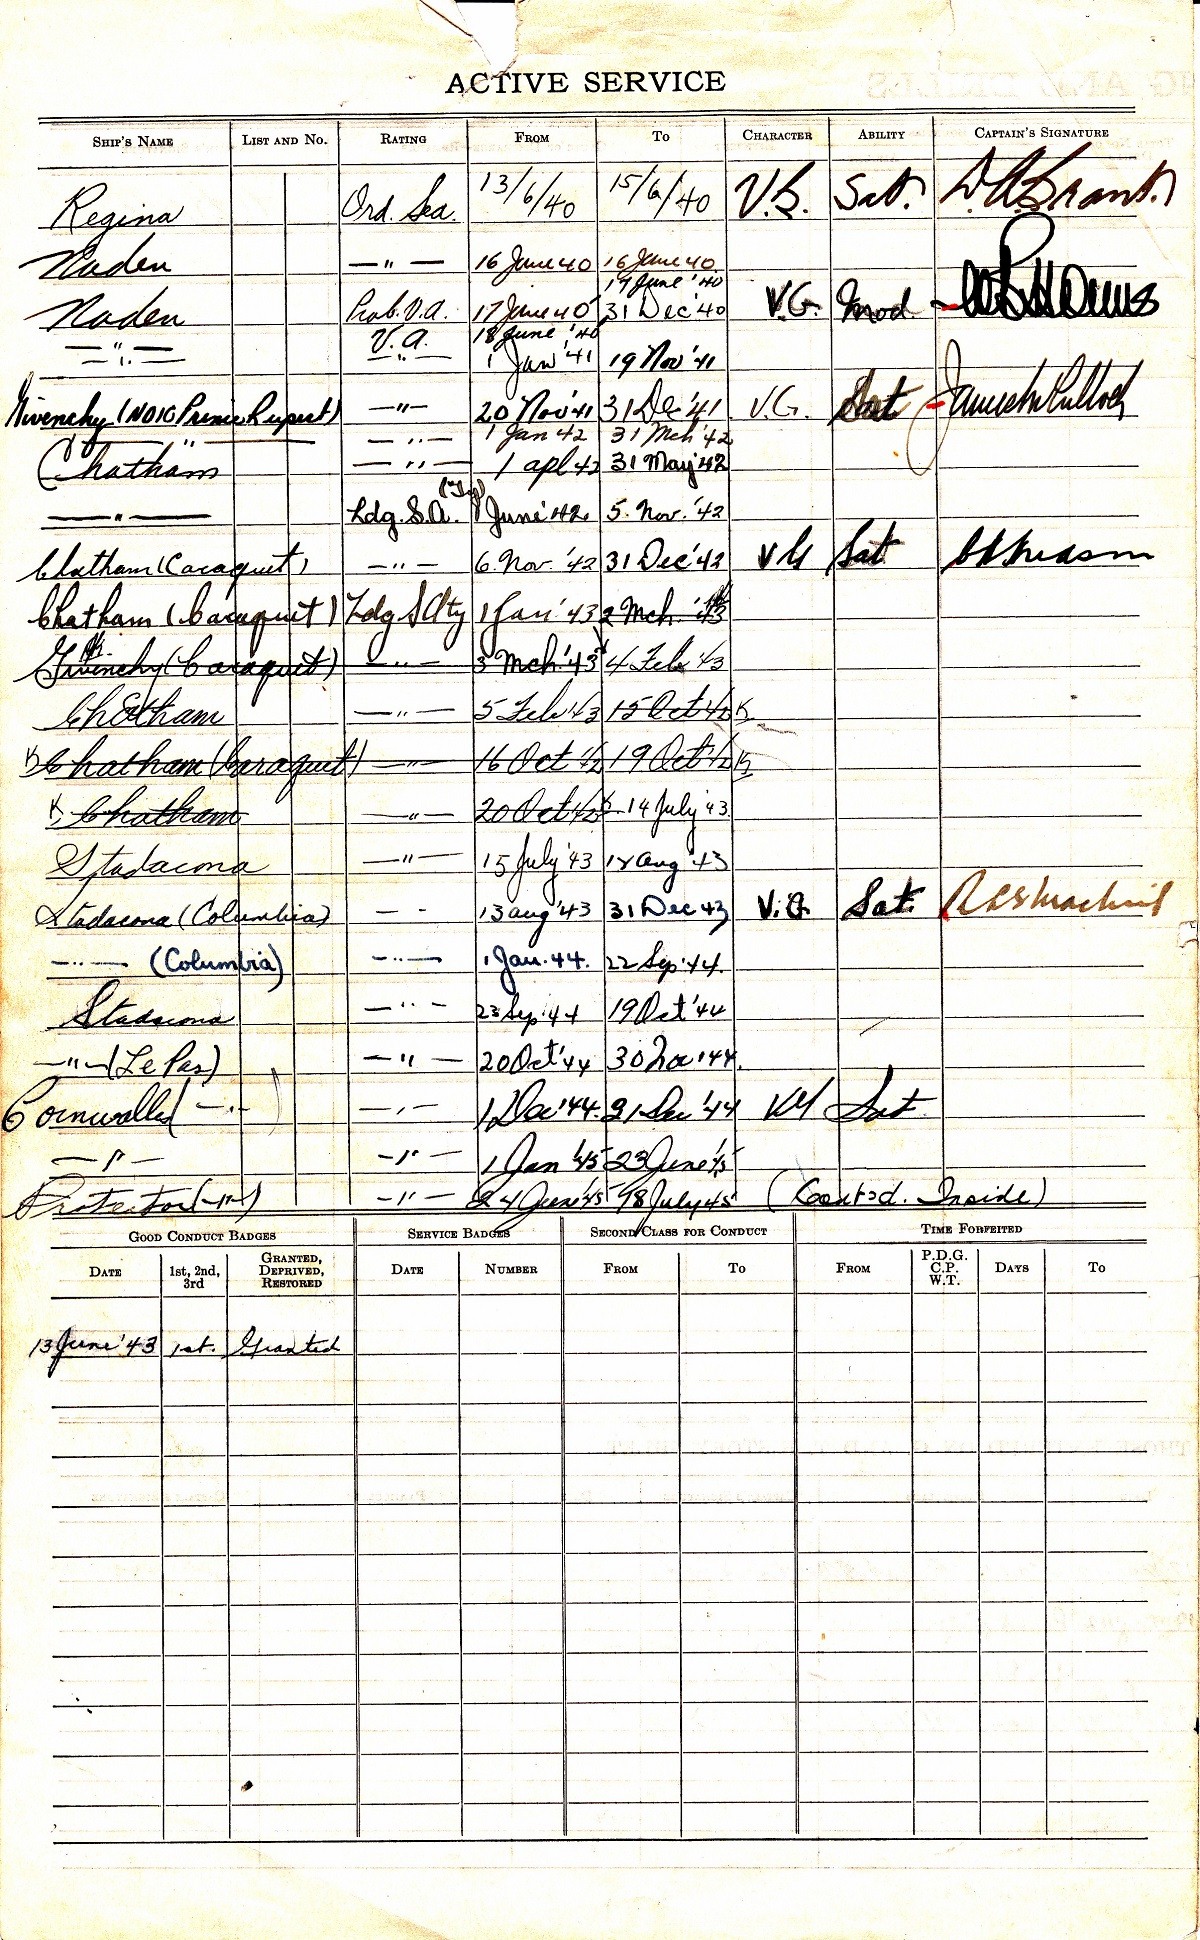 ACTIVE SERVICE
SHIP'S NAME LIST AND NO. RATING FROM TO CHARACTER ABILITY CAPTAIN'S SIGNATURE
Regina Ord. Sea. 13/6/40 15/6/40 V.G. Sat.
Naden —"— 16 June 40 16 June 40
17 June '40
Naden Prob. V.A. 17 June 40 31 Dec '40 V.G. Mod.
V.A. 18 June '40
—"— —"— 1 Jan '41 19 Nov '41
Givenchy (NOIC Prince Rupert) —"— 20 Nov '41 31 Dec '41 V.G. Sat
—"— —"— 1 Jan 42 31 Mch '42
Chatham —"— 1 Apl 42 31 May '42
—"— Ldg. S.A. (Ty) 1 June '42 5 Nov. '42
Chatham (Caraquet) —"— 6 Nov. '42 31 Dec '42 VG Sat
Chatham (Caraquet) Ldg SA ty 1 Jan '43 2 Mch. '43
Givenchy (Caraquet) —"— 3 Mch. '43 4 Feb 43
Chatham —"— 5 Feb 43 15 Oct 42 K
K Chatham (Caraquet) —"— 16 Oct 42 19 Oct 42 K
K Chatham —"— 20 Oct 42 K 14 July '43
Stadacona —"— 15 July '43 12 Aug '43
Stadacona (Columbia) — - 13 Aug '43 31 Dec 43 V.G. Sat.
—"— (Columbia) —"— 1 Jan. 44. 22 Sep '44.
Stadacona —"— 23 Sep '44 19 Oct '44
—"— (Le Pas) —"— 20 Oct '44 30 Nov '44.
Cornwallis —"— —"— 1 Dec '44. 31 Dec '44 VG Sat
—"— —"— 1 Jan '45 23 June '45
Protector (—"—) —"— 24 June '45 18 July 45 (Cont'd. Inside)
GOOD CONDUCT BADGES SERVICE BADGES SECOND CLASS FOR CONDUCT TIME FORFEITED
DATE 1st, 2nd, 3rd GRANTED, DEPRIVED, RESTORED DATE NUMBER FROM TO FROM P.D.G. C.P. W.T. DAYS TO
13 June '43 1st. Granted